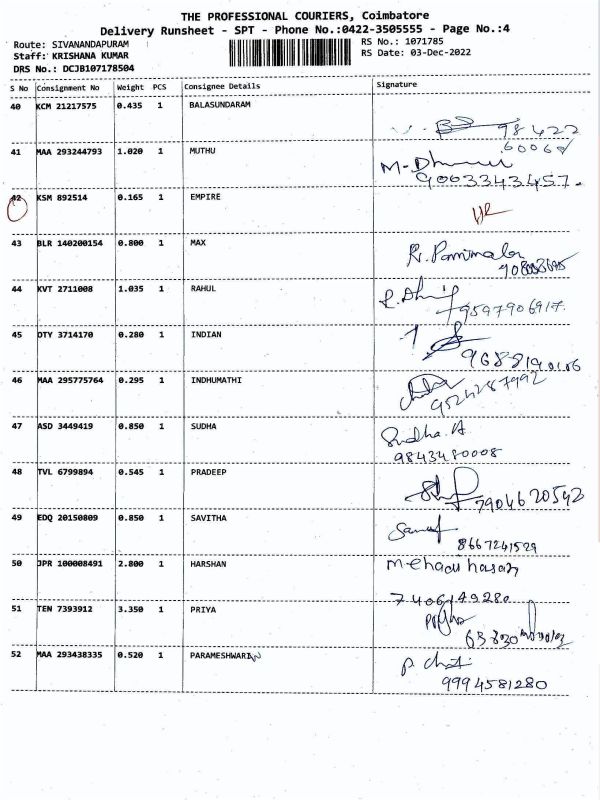 THE PROFESSIONAL COURIERS, Coimbatore
Delivery Runsheet - SPT - Phone No.:0422-3505555 - Page No.:4
Route: SIVANANDAPURAM
RS No.: 1071785
Staff: KRISHANA KUMAR
RS Date: 03-Dec-2022
DRS No.: DCJB107178504
S No Consignment No Weight PCS Consignee Details Signature
40 KCM 21217575 0.435 1 BALASUNDARAM
98422
60060
41 MAA 293244793 1.020 1 MUTHU
9003343457.
42 KSM 892514 0.165 1 EMPIRE
43 BLR 140200154 0.800 1 MAX
44 KVT 2711008 1.035 1 RAHUL
9597906917.
45 OTY 3714170 0.280 1 INDIAN
46 MAA 295775764 0.295 1 INDHUMATHI
9524287992
47 ASD 3449419 0.850 1 SUDHA
Sudha.A
9843480008
48 TVL 6799894 0.545 1 PRADEEP
7904620542
49 EDQ 20150809 0.850 1 SAVITHA
8667241529
50 JPR 100008491 2.800 1 HARSHAN
7406149280
51 TEN 7393912 3.350 1 PRIYA
52 MAA 293438335 0.520 1 PARAMESHWARI
9994581280